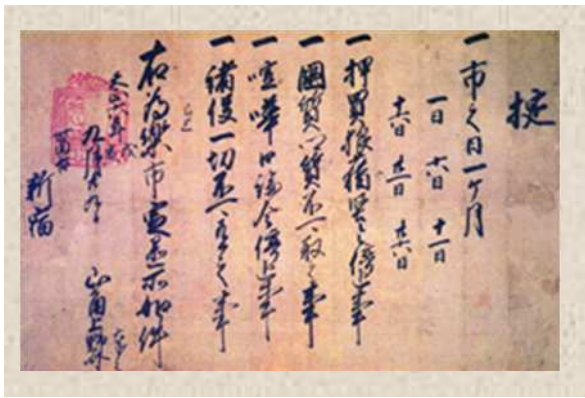 掟
一市之日一ヶ月
一日 六日 十一日
十六日 廿一日 廿六日
一押買狼藉堅令停止事
一國質郷質不可取之事
一喧嘩口論令停止事
一諸役一切不可有之事
已上
右為楽市定置所如件
天正六年戊寅
九月廿九日
新宿
山角上野介